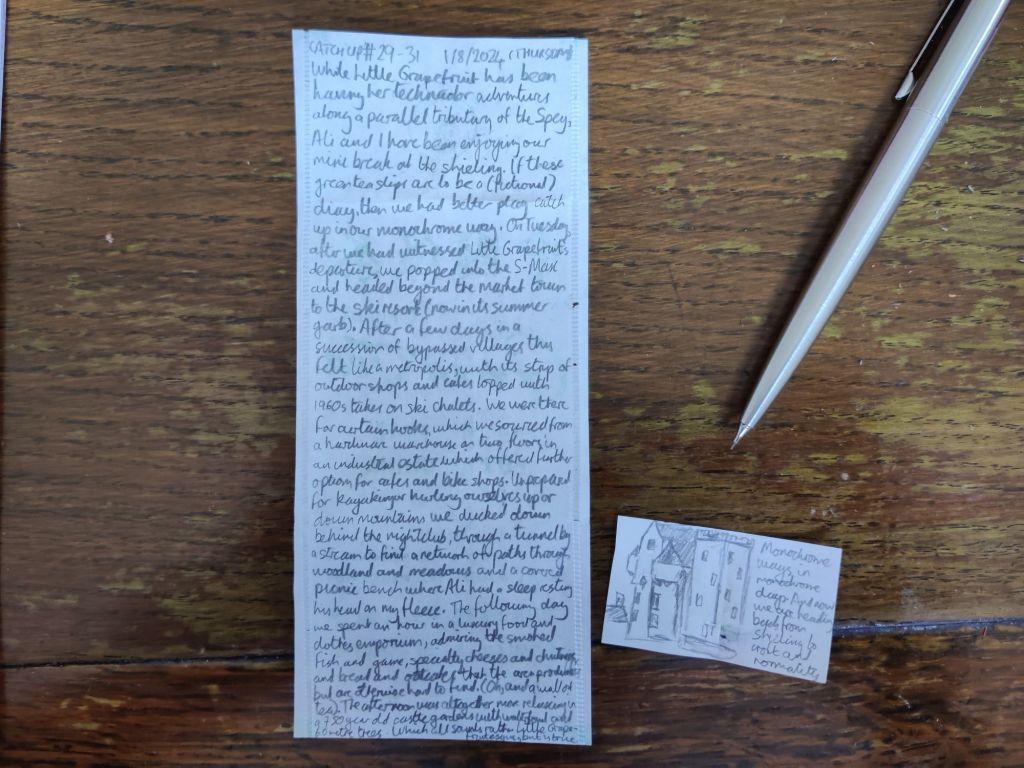 CATCH UP # 29-31 1/8/2024 (THURSDAY)
While Little Grapefruit has been
having her technicolor adventures
along a parallel tributary of the Spey,
Ali and I have been enjoying our
mini break at the shieling. If these
green tea slips are to be a (fictional)
diary, then we had better play catch
up in our monochrome way. On Tuesday,
after we had witnessed Little Grapefruit's
departure, we popped into the S-Max
and headed beyond the market town
to the ski resort (now in its summer
garb). After a few days in a
succession of bypassed villages this
felt like a metropolis, with its strip of
outdoor shops and cafes topped with
1960s takes on ski chalets. We were there
for curtain hooks, which we sourced from
a hardware warehouse on two floors in
an industrial estate which offered further
option for cafes and bike shops. Unprepared
for kayaking or hurling ourselves up or
down mountains we ducked down
behind the nightclub, through a tunnel by
a stream to find a network of paths through
woodland and meadows and a covered
picnic bench where Ali had a sleep resting
his head on my fleece. The following day
we spent an hour in a luxury food and
clothes emporium, admiring the smoked
fish and game, specialty cheeses and chutneys
and bread and oatcakes that the area produces
but are otherwise hard to find. (Oh, and a wall of
tea). The afternoon was altogether more relaxing in
a 750 year old castle gardens with waterfowl and
60 metre trees. Which all sounds rather Little Grape-
fruitesque, but is true.
Monochrome
ways in
monochrome
days. And now
we are heading
back from
shieling to
croft and
normality